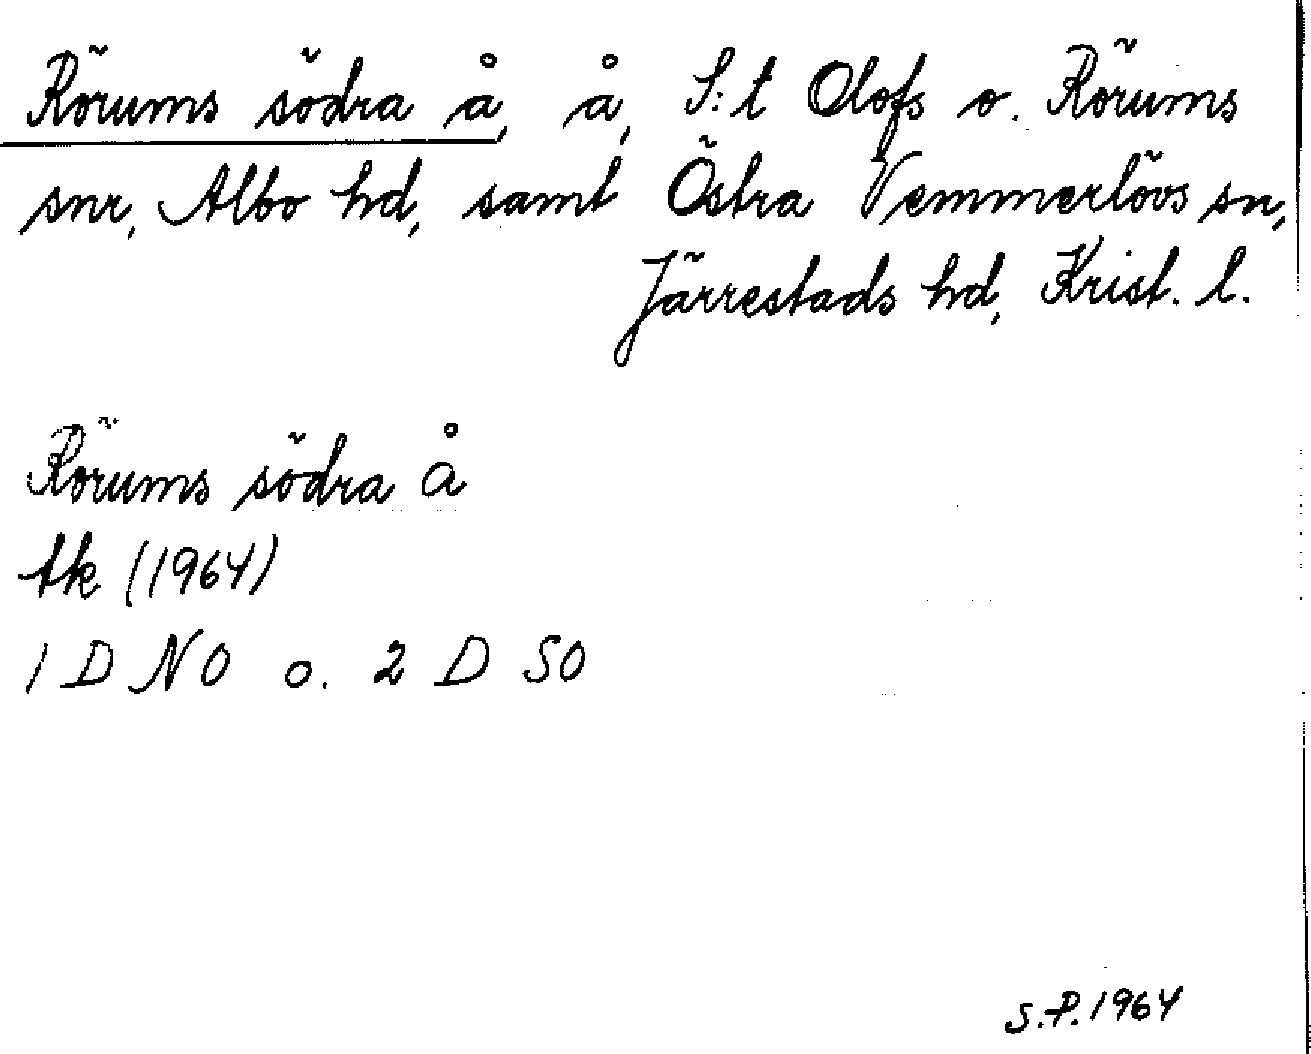 Rörums södra å, å, S:t Olofs o. Rörums
snr, Albo hd, samt Östra Vemmerlövs sn,
Järrestads hd, Krist. l.
Rörums södra å
tk (1964)
1 D NO o. 2 D SO
S.P. 1964